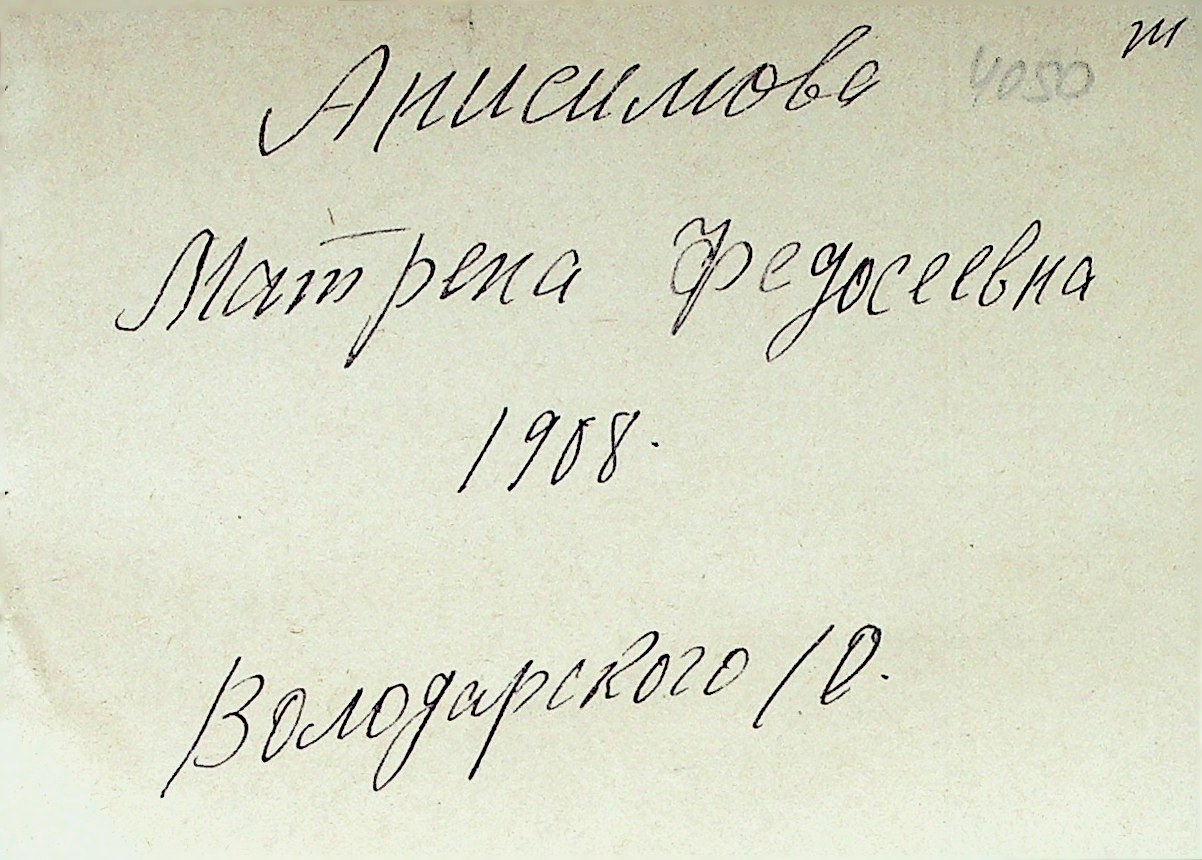 Анисимова 4050
Матрена Федосеевна
1908.
Володарского 10.